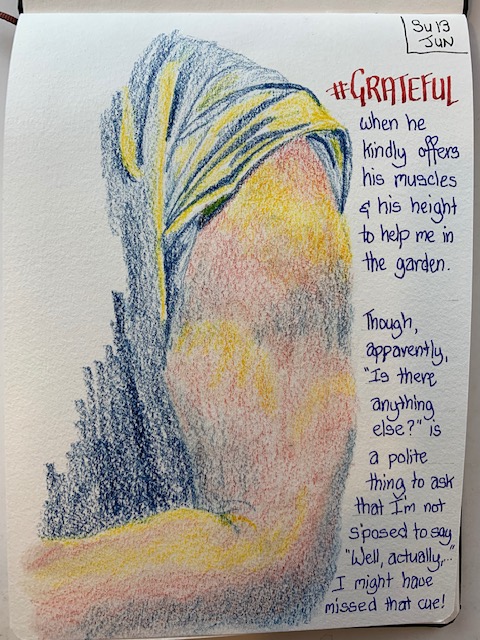 SU 13
JUN
#GRATEFUL
when he
kindly offers
his muscles
& his height
to help me in
the garden.
Though,
apparently,
"Is there
anything
else?" is
a polite
thing to ask
that I'm not
s'posed to say
"Well, actually,..."
I might have
missed that cue!